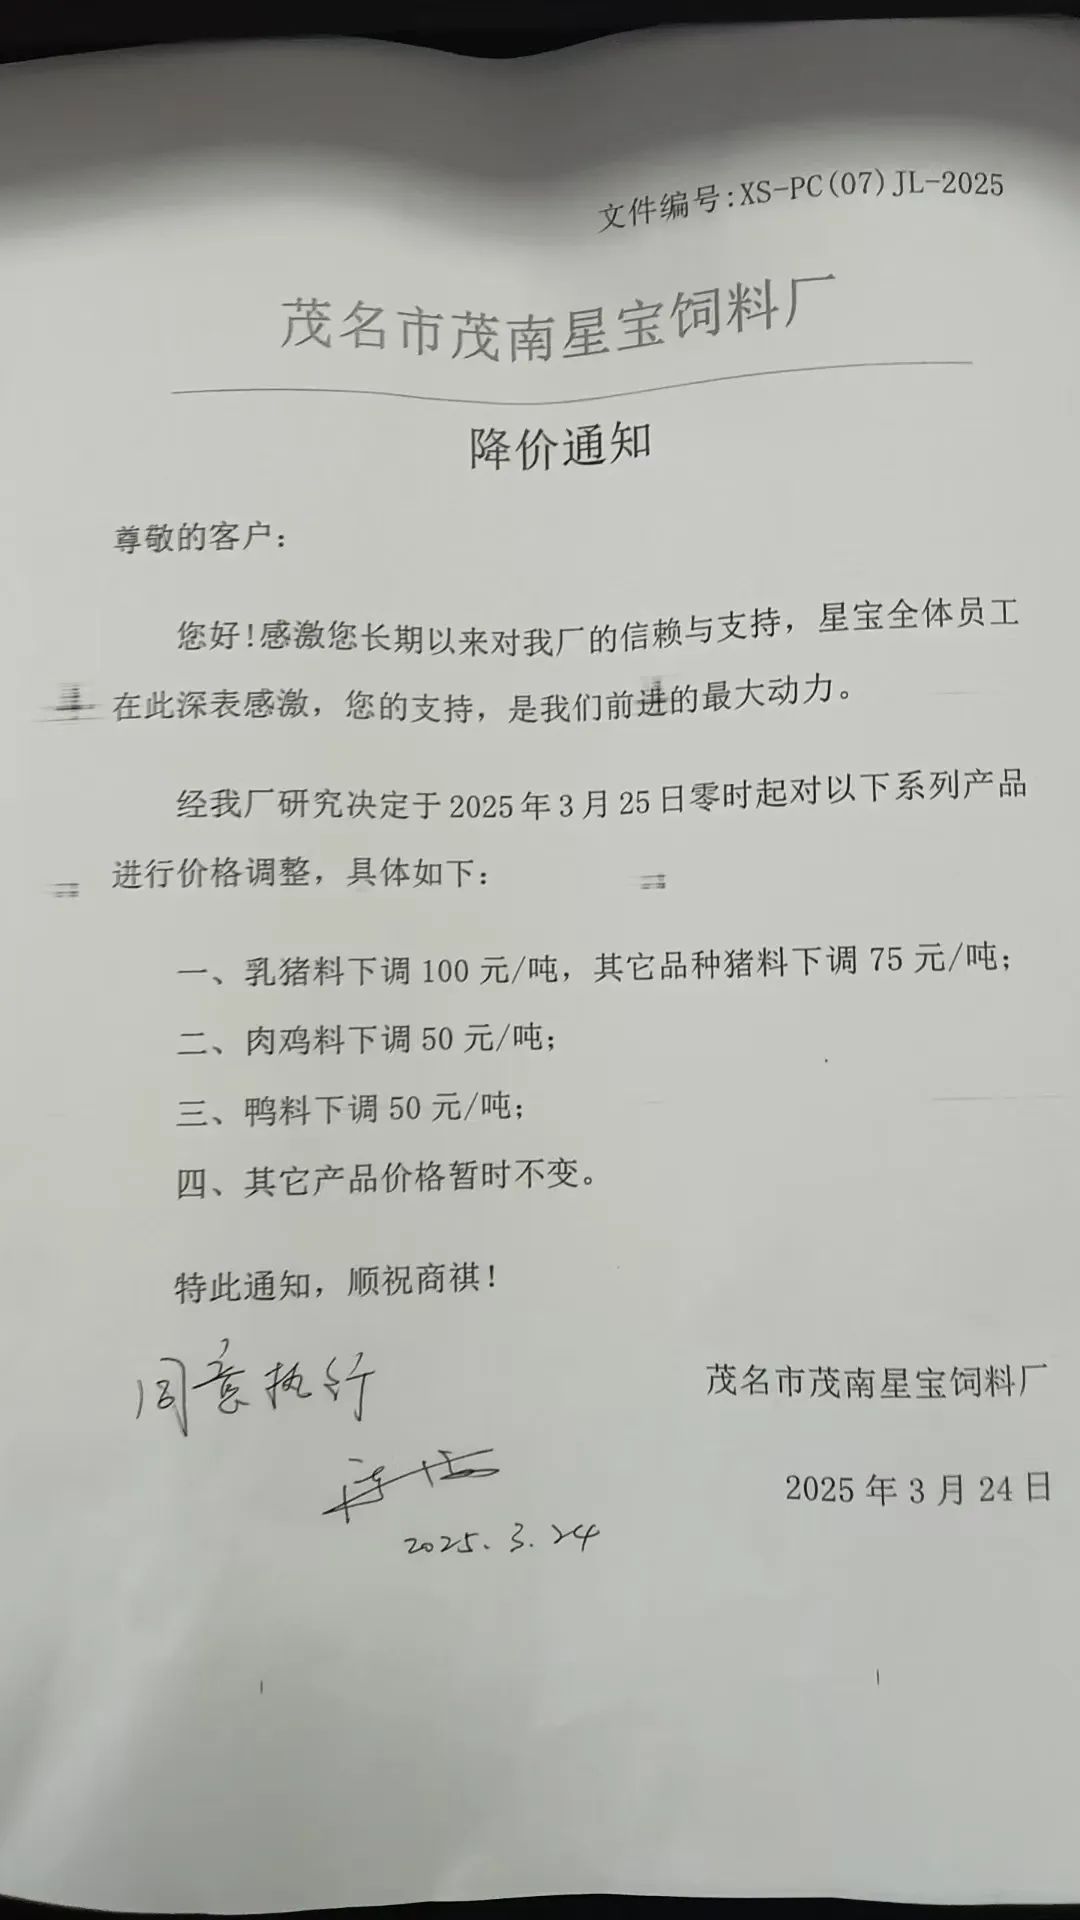 文件编号:XS-PC(07)JL-2025
茂名市茂南星宝饲料厂
降价通知
尊敬的客户：
您好!感激您长期以来对我厂的信赖与支持，星宝全体员工
在此深表感激，您的支持，是我们前进的最大动力。
经我厂研究决定于2025年3月25日零时起对以下系列产品
进行价格调整，具体如下：
一、乳猪料下调100元/吨，其它品种猪料下调75元/吨；
二、肉鸡料下调50元/吨；
三、鸭料下调50元/吨；
四、其它产品价格暂时不变。
特此通知，顺祝商祺！
同意执行
茂名市茂南星宝饲料厂
2025年3月24日
2025.3.24